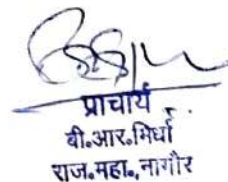 प्राचार्य
बी.आर.मिर्धा
राज.महा., नागौर